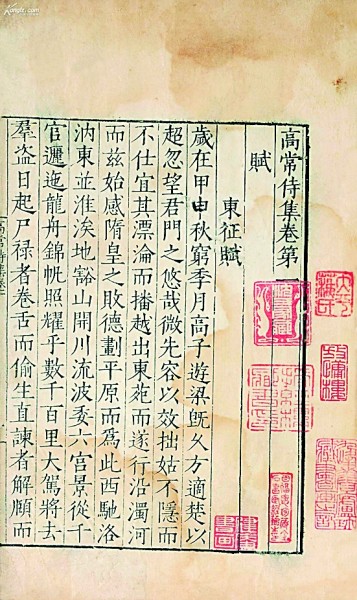 高常侍集卷第
賦
東征賦
歲在甲申秋窮季月高子遊梁旣久方適楚以
超忽望君門之悠哉微先容以效拙姑不隱而
不仕宜其漂淪而播越出東苑而遂行沿濁河
而兹始感隋皇之敗德劃平原而爲此西馳洛
汭東並淮涘地豁山開川流波委六宮景從千
官邐迤龍舟錦帆照耀乎數千百里大駕將去
羣盗日起尸禄者卷舌而偷生直諫者解頤而